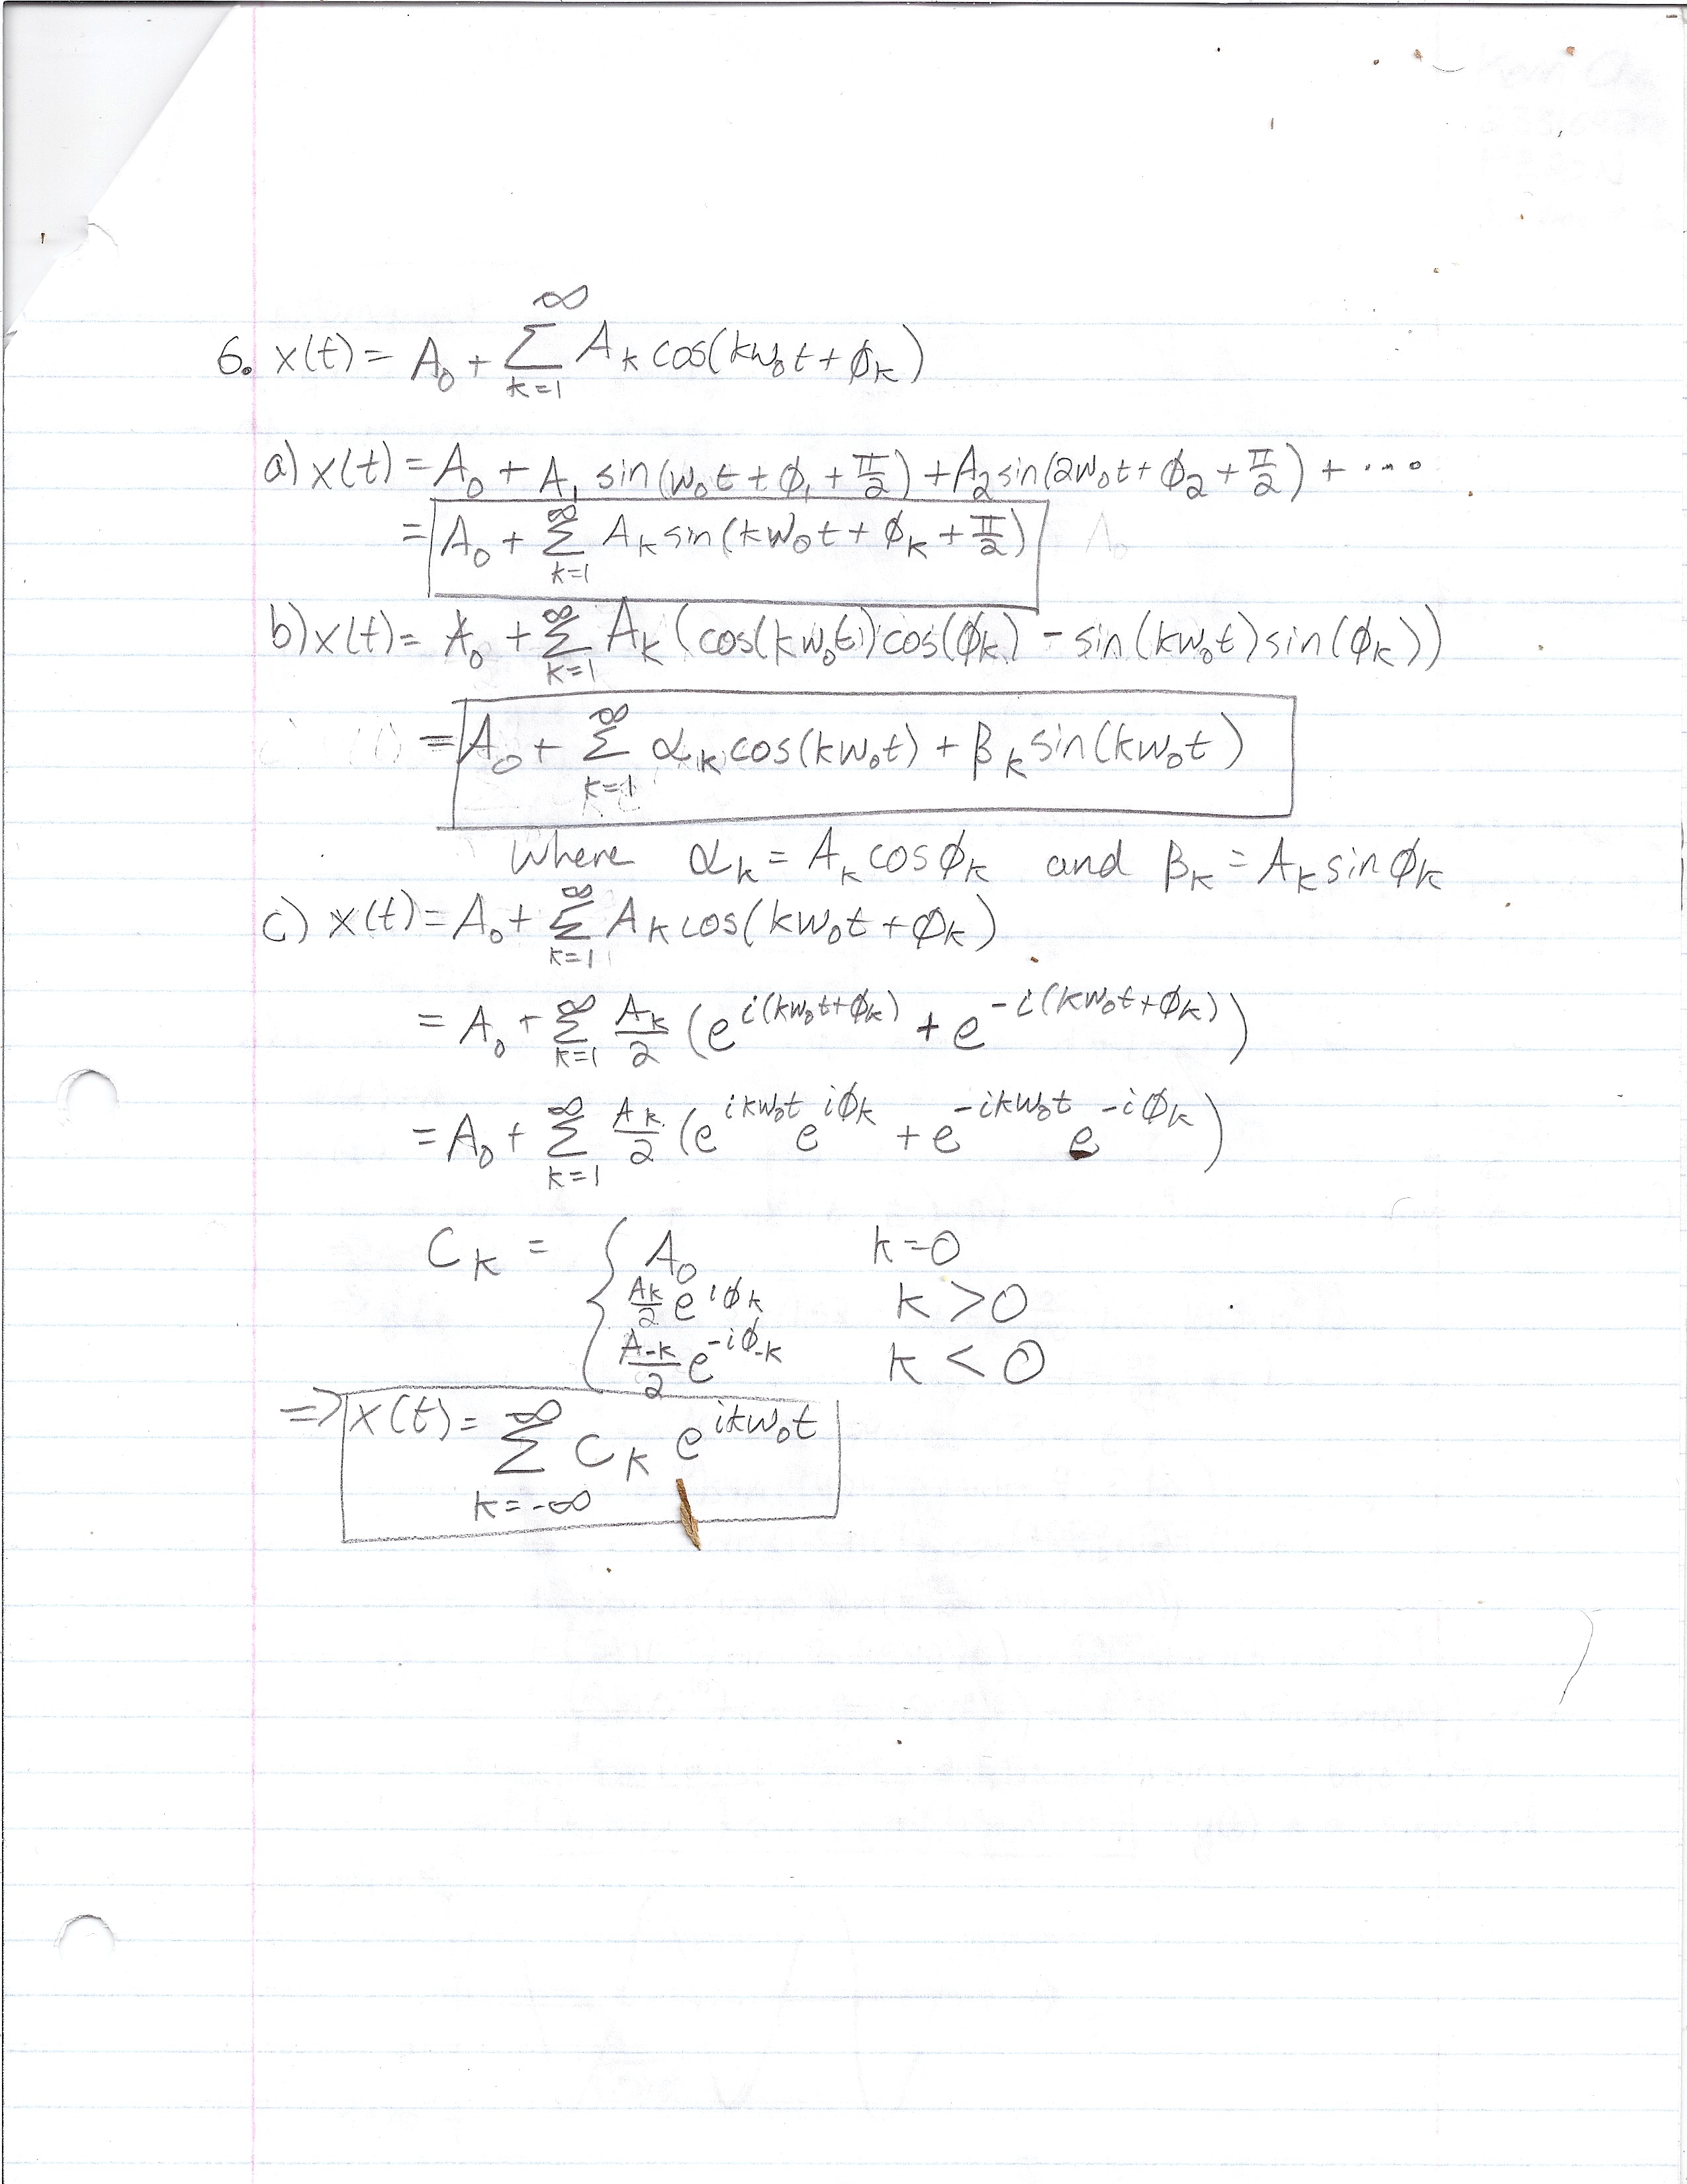 6. x(t) = A₀ + ∞∑k=1 Aₖ cos(kω₀t + ϕₖ)
a) x(t) = A₀ + A₁ sin(ω₀t + ϕ₁ + π/2) + A₂ sin(2ω₀t + ϕ₂ + π/2) + ...
= A₀ + ∞∑k=1 Aₖ sin(kω₀t + ϕₖ + π/2)
b) x(t) = A₀ + ∞∑k=1 Aₖ (cos(kω₀t) cos(ϕₖ) - sin(kω₀t) sin(ϕₖ))
= A₀ + ∞∑k=1 αₖ cos(kω₀t) + βₖ sin(kω₀t)
where αₖ = Aₖ cos ϕₖ and βₖ = Aₖ sin ϕₖ
c) x(t) = A₀ + ∞∑k=1 Aₖ cos(kω₀t + ϕₖ)
= A₀ + ∞∑k=1 Aₖ/2 (e^{i(kω₀t+ϕₖ)} + e^{-i(kω₀t+ϕₖ)})
= A₀ + ∞∑k=1 Aₖ/2 (e^{ikω₀t} e^{iϕₖ} + e^{-ikω₀t} e^{-iϕₖ})
Cₖ = { A₀ k=0
Aₖ/2 e^{iϕₖ} k > 0
A₋ₖ/2 e^{-iϕ₋ₖ} k < 0
⇒ x(t) = ∞∑k=-∞ Cₖ e^{ikω₀t}